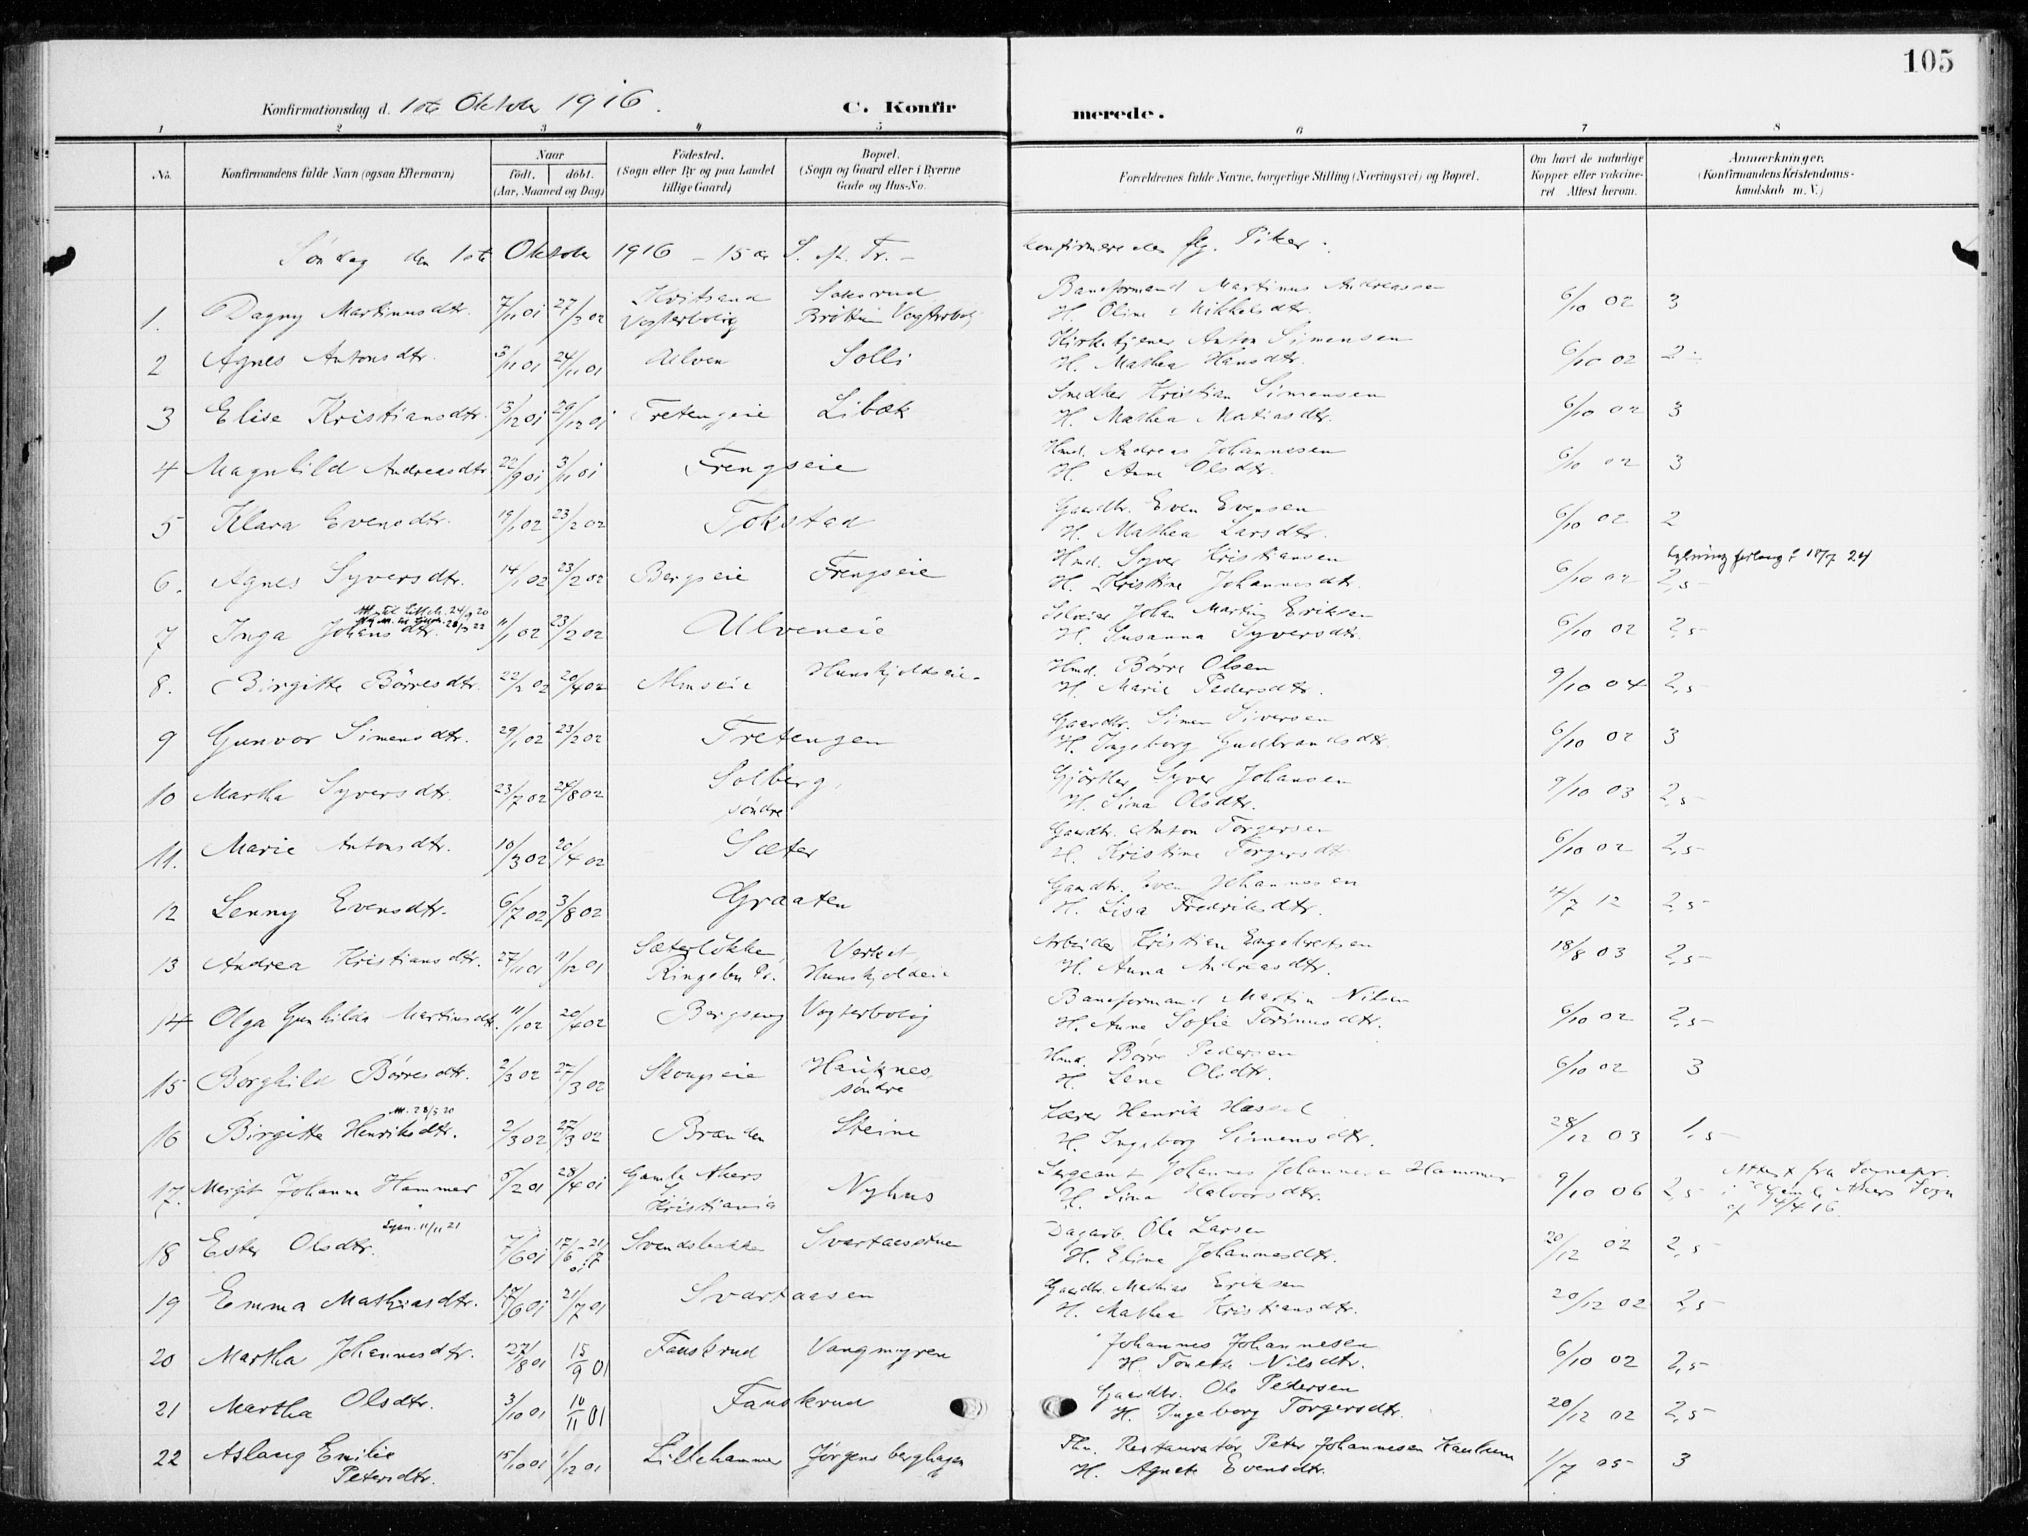 105
Konfirmationsdag d. 1ste Oktober 1916.
C. Konfirmerede.
1 2 3 4 5 6 7 8
No.
Konfirmandens fulde Navn (ogsaa Efternavn)
Naar
født. døbt.
(Aar, Maaned og Dag)
Fødested.
(Sogn eller By og paa Landet
tillige Gaard)
Bopæl.
(Sogn og Gaard eller i Byerne
Gade og Hus-No.
Forældrenes fulde Navne, borgerlige Stilling (Næringsvei) og Bopæl.
Om havt de naturlige
Kopper eller vakcine-
ret Attest herom.
Anmærkninger.
(Konfirmandens Kristendoms-
kundskab m. V.)
Søndag den 1ste Oktober 1916 – 15 de S. eft. Tr. – konfirmeredes flg. Piker:
1. Dagny Martinusdtr. 7/11 01 27/3 02 Kvitsand Vogterbolig Brøttum Vogterbol. Baneformand Martinus Andreassen
H. Oline Mikkelsdtr. 6/10 02 3
2 Agnes Antonsdtr. 3/11 01 24/11 01 Ulven Solli Kirketjener Anton Simensen
H. Mathea Hansdtr. 6/10 02 2
3 Elise Kristiansdtr. 13/12 01 29/12 01 Fretengeie Libæk Snedker Kristian Simensen
H. Mathea Matiasdtr. 6/10 02 3
4 Magnhild Andreasdtr. 22/9 01 3/11 01 Frengseie Hmd. Andreas Johannesen
H. Anne Olsdtr. 6/10 02 3
5 Klara Evensdtr. 19/1 02 23/2 02 Tokstad Gaardbr. Even Evensen
H. Mathea Larsdtr. 6/10 02 2
6. Agnes Syversdtr. 14/1 02 23/2 02 Bergseie Frengseie Hmd. Syver Kristiansen
H. Kristine Johannesdtr. 6/10 02 2,5 17/7 24
7 Inga Johansdtr. 11/1 02 23/2 02 Ulveneie Johan Martin Eriksen
H. Susanna Syversdtr. 6/10 02 2,5
8. Birgitte Børresdtr. 22/2 02 20/4 02 Almseie Hunskjoldseie Hmd. Børre Olsen
H. Marie Pedersdtr. 9/10 04 2,5
9 Gunvor Simensdtr. 29/1 02 23/2 02 Fretengen Gaardbr. Simen Siversen
H. Ingeborg Gudbrandsdtr. 6/10 02 3
10 Martha Syversdtr. 23/7 02 24/8 02 Solberg, søndre Gjørtler Syver Johansen
H. Sina Olsdtr. 9/10 03 2,5
11. Marie Antonsdtr. 10/3 02 20/4 02 Sæter Gaardbr. Anton Torgersen
H. Kristine Torgersdtr. 6/10 02 2,5
12 Lenny Evensdtr. 6/7 02 3/8 02 Graaten Gaardbr. Even Johannesen
H. Lisa Fredriksdtr. 4/7 12 2,5
13 Andrea Kristiansdtr. 27/1 01 1/12 01 Sæterløkke, Ringebu Pr. Verket, Hunskjoldeie Arbeider Kristian Engebretsen
H. Anna Andreasdtr. 18/8 03 2,5
14 Olga Gunhilda Martinsdtr. 11/1 02 20/4 02 Bergseng Vogterbolig Baneformand Martin Nilsen
H. Anne Sofie Torinusdtr. 6/10 02 2,5
15 Borghild Børresdtr. 2/3 02 27/3 02 Skougseie Hauknes, søndre Hmd. Børre Pedersen
H. Lene Olsdtr. 6/10 02 3
16 Birgitte Henriksdtr. 2/3 02 27/3 02 Brænden Steine Lærer Henrik Hassel
H. Ingeborg Simensdtr. 28/12 03 1,5
17. Margit Johanne Hammer 5/2 01 28/4 01 Gamle Akers Kristiania Nyhus Sergeant Johannes Johannesen Hammer
H. Sina Halvorsdtr. 9/10 06 2,5 Attest fra Sognepr. i Gamle Akers Sogn af 4/4 16.
18 Ester Olsdtr. 7/6 01 Svendsbakke Svartaasstuen Dagarb. Ole Larsen
H. Eline Johannesdtr. 20/12 02 2,5
19 Emma Mathiasdtr. 17/6 01 21/7 01 Svartaasen Gaardbr. Mathias Eriksen
H. Mathea Kristiansdtr. 20/12 02 2,5
20 Martha Johannesdtr. 27/8 01 15/9 01 Fauskrud Vangmyren Johannes Johannesen
H. Tonette Nilsdtr. 6/10 02 2,5
21 Martha Olsdtr. 3/10 01 10/11 01 Fauskrud Gaardbr. Ole Pedersen
H. Ingeborg Torgersdtr. 20/12 02 2,5
22 Aslaug Emilie Petersdtr. 15/10 01 1/12 01 Lillehammer Jørgensberghagen Fhv. Restauratør Peter Johannesen
H. Agnete Evensdtr. 1/7 05 3